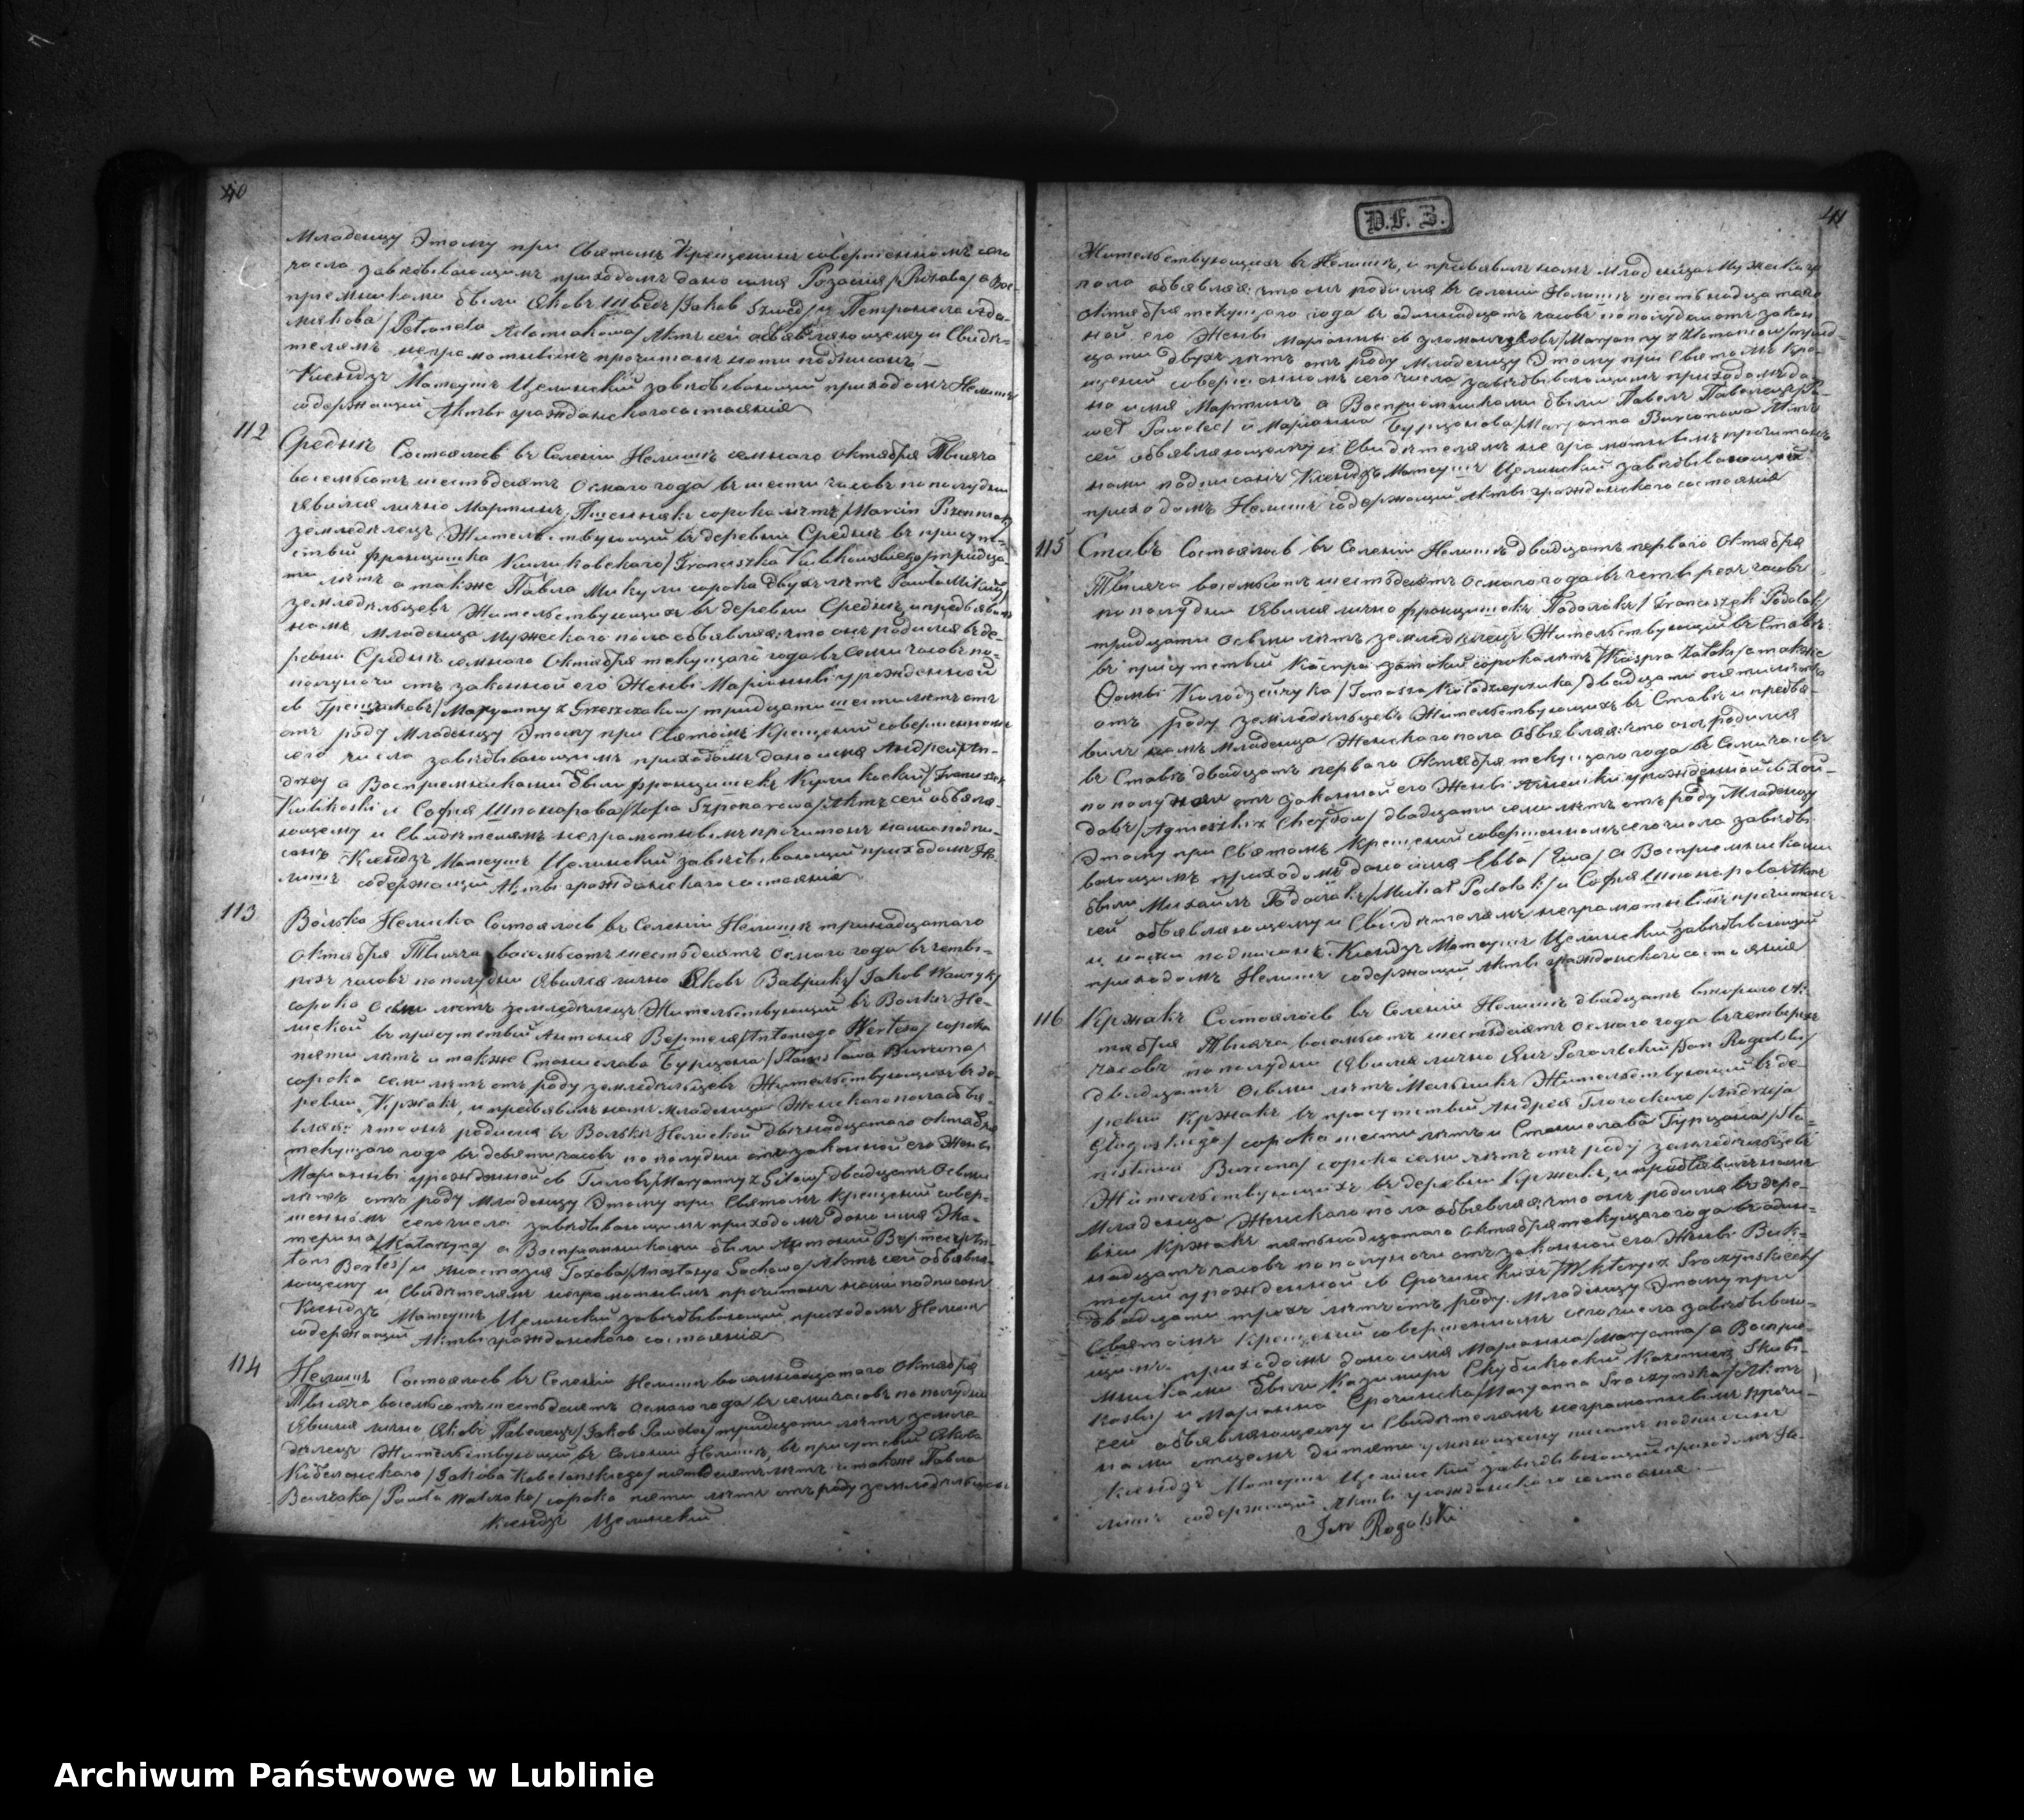 40
Младенцу Этому при Святомъ Крещении совершенномъ сего
числа завѣдывающимъ приходомъ дано имя Розалія /Rozalia/ а Вос-
приемниками были Яковъ Шведъ /Jakob Szwed/ и Петронеля Ада-
мякова /Petronela Adamiakowa/ Актъ сей объявляющему и Свидѣ-
телямъ неграмотнымъ прочитанъ нами подписанъ. —
Ксендзъ Матеушъ Целинскій завѣдывающій приходомъ Нелишъ
содержащій Акты гражданскаго состоянія
112
Средьнъ Состоялось въ Селеніи Нелишъ седьмаго Октября Тысяча
восемьсотъ шестьдесятъ Осмаго года въ шести часовъ по полудни
Явился лично Мартинъ Пшеннякъ сорока лѣтъ /Marcin Pszenniak/
земледѣлецъ Жительствующій въ деревни Средьнъ въ присут-
ствіи Францишка Куликовскаго /Franciszka Kulikowskiego/ тридца-
ти лѣтъ а также Павла Микули сорока двухъ лѣтъ /Pawła Mikuły/
земледѣльцевъ Жительствующихъ въ деревни Средьнъ, и предъявилъ
намъ Младенца Мужескаго пола объявляя: что онъ родился въ де-
ревни Средьнъ седьмаго Октября текущаго года въ Семи часовъ по-
полуночи отъ законной его Жены Маріанны урожденной
съ Грещаковъ /Maryanny z Grzeszczaków/ тридцати шести лѣтъ отъ
отъ роду Младенцу Этому при Святомъ Крещеніи совершенномъ
сего числа завѣдывающимъ приходомъ дано имя Андрей /An-
drzey/ а Воспріемниками были Францишекъ Куликоскій /Franciszek
Kulikoski/ и Софія Шпонарова /Zofia Szponarowa/ Актъ сей объявля-
ющему и Свидѣтелямъ неграмотнымъ прочитанъ нами подпи-
санъ Ксендзъ Матеушъ Целинскій завѣдывающій приходомъ Не-
лишъ содержащій Акты гражданскаго состоянія
113
Волька Нелиска Состоялось въ Селеніи Нелишъ тринадцатаго
Октября Тысяча восемьсотъ шестьдесятъ Осмаго года въ четы-
рехъ часовъ по полудни Явился лично Яковъ Ваврикъ /Jakob Wawryk/
сорока Осми лѣтъ земледѣлецъ Жительствующій въ Волькѣ Не-
лиской въ присутствіи Антонія Вертеля /Antoniego Wertesa/ сорока
пяти лѣтъ и также Станислава Бурцона /Stanisława Burcona/
сорока семи лѣтъ отъ роду земледѣльцевъ Жительствующихъ въ де-
ревни Кржакъ, и предъявилъ намъ младенца Женскаго пола объя-
вляя: что онъ родился въ Волькѣ Нелиской двѣнадцатаго Октября
текущаго года въ девяти часовъ по полудни отъ законной его Жены
Маріанны урожденной съ Гиловъ /Maryanny z Gilów/ двадцать Осми
лѣтъ отъ роду Младенцу Этому при Святомъ Крещеніи совер-
шенномъ сего числа завѣдывающимъ приходомъ дано имя Эка-
терина /Katarzyna/ а Воспріемниками были Антоній /An-
toni Bertes/ и Анастазія Гохова /Anastazya Gochowa/ Актъ сей объявля-
ющему и Свидѣтелямъ неграмотнымъ прочитанъ нами подписанъ
Ксендзъ Матеушъ Целинскій завѣдывающій приходомъ Нелишъ
содержащій Акты гражданскаго состоянія
114
Нелишъ Состоялось въ Селеніи Нелишъ восемнадцатаго Октября
Тысяча восемьсотъ шестьдесятъ Осмаго года въ семи часовъ по полудни
Явился лично Яковъ Павелецъ /Jakob Pawelec/ тридцати лѣтъ земле-
дѣлецъ Жительствующій въ Селеніи Нелишъ, въ присутствіи Якова
Кобеланскаго /Jakoba Kobelanskiego/ пятьдесятъ лѣтъ и также Павла
Вальчака /Pawła Walczaka/ сорока пяти лѣтъ отъ роду земледѣльцевъ
Ксендзъ Целинскій
D.F.Z.
41
Жительствующихъ въ Нелишъ, и предъявилъ намъ Младенца Мужескаго
пола объявляя: что онъ родился въ Селеніи Нелишъ шестьнадцатаго
Октября текущаго года въ одинадцать часовъ по полудни отъ закон-
ной его Жены Маріанны съ /Maryanny z / трид-
цати двухъ лѣтъ отъ роду Младенцу Этому при Святомъ Кре-
щеніи совершенномъ сего числа завѣдывающимъ приходомъ да-
но имя Мартинъ а Воспріемниками были Павелъ Павелецъ /Pa-
weł Pawelec/ и Маріанна Бурцонова /Maryanna Burconowa/ Актъ
сей объявляющему и Свидѣтелямъ не грамотнымъ прочитанъ
нами подписанъ Ксендзъ Матеушъ Целинскій завѣдывающій
приходомъ Нелишъ содержащій Акты гражданскаго состоянія
115
Ставъ Состоялось въ Селеніи Нелишъ двадцать перваго Октября
Тысяча восемьсотъ шестьдесятъ Осмаго года въ четырехъ часовъ
по полудни Явился лично Францишекъ Подолакъ /Franciszek Podolak/
тридцати Осьми лѣтъ земледѣлецъ Жительствующій въ Ставѣ
въ присутствіи Каспра Затоки сорока лѣтъ /Kaspra Zatoki/ а также
Фомы Колодзейчука /Tomasza Kołodzieyczuka/ двадцати пяти лѣтъ
отъ роду земледѣльцевъ Жительствующихъ въ Ставѣ и предъя-
вилъ намъ Младенца Женскаго пола Объявляя: что она родился
въ Ставѣ двадцать перваго Октября текущаго года въ Семи часовъ
по полуночи отъ законной его Жены Агнешки урожденной съ Хой-
давъ двадцати семи лѣтъ отъ роду Младенцу
Этому при Святомъ Крещеніи совершенномъ сего числа завѣды-
вающимъ приходомъ дано имя Евва /Ewa/ а Воспріемниками
были Михаилъ Подолакъ /Michał Podolak/ и Софія Шпонарова Актъ
сей объявляющему и Свидѣтелямъ неграмотнымъ прочитанъ
и нами подписанъ. Ксендзъ Матеушъ Целинскій завѣдывающій
приходомъ Нелишъ содержащій Акты гражданскаго состоянія
116
Кржакъ Состоялось въ Селеніи Нелишъ двадцать втораго Ок-
тября Тысяча восемьсотъ шестьдесятъ Осмаго года въ четырехъ
часовъ по полудни Явился лично Янъ Рогальскій /Jan Rogalski/
двадцать Осьми лѣтъ Мельникъ Жительствующій въ де-
ревни Кржакъ въ присутствіи Андрея Глогоскаго /Andrzeja
Głogoskiego/ сорока шести лѣтъ и Станислава Бурцона /Sta-
nisława Burcona/ сорока семи лѣтъ отъ роду земледѣльцевъ
Жительствующихъ въ деревни Кржакъ, и предъявилъ намъ
Младенца Женскаго пола объявляя, что онъ родился въ дере-
вни Кржакъ пятьнадцатаго Октября текущаго года въ один-
надцать часовъ по полуночи отъ законной его Жены Вик-
торіи урожденной съ Срочинскихъ /Wiktoryi z Sroczynskich/
двадцати трехъ лѣтъ отъ роду. Младенцу Этому при
Святомъ Крещеніи совершенномъ сего числа завѣдываю-
щимъ приходомъ дано имя Маріанна /Maryanna/ а Воспріе-
мниками были Казимиръ /Kazimierz
/ и Маріанна Срочинска /Maryanna Sroczynska/ Актъ
сей объявляющему и Свидѣтелямъ неграмотнымъ прочи-
нами отцемъ дитяти умѣющему писать подписанъ
Ксендзъ Матеушъ Целинскій завѣдывающій приходомъ Не-
лишъ содержащій Акты гражданскаго состоянія —
Jan Rogalski
Archiwum Państwowe w Lublinie